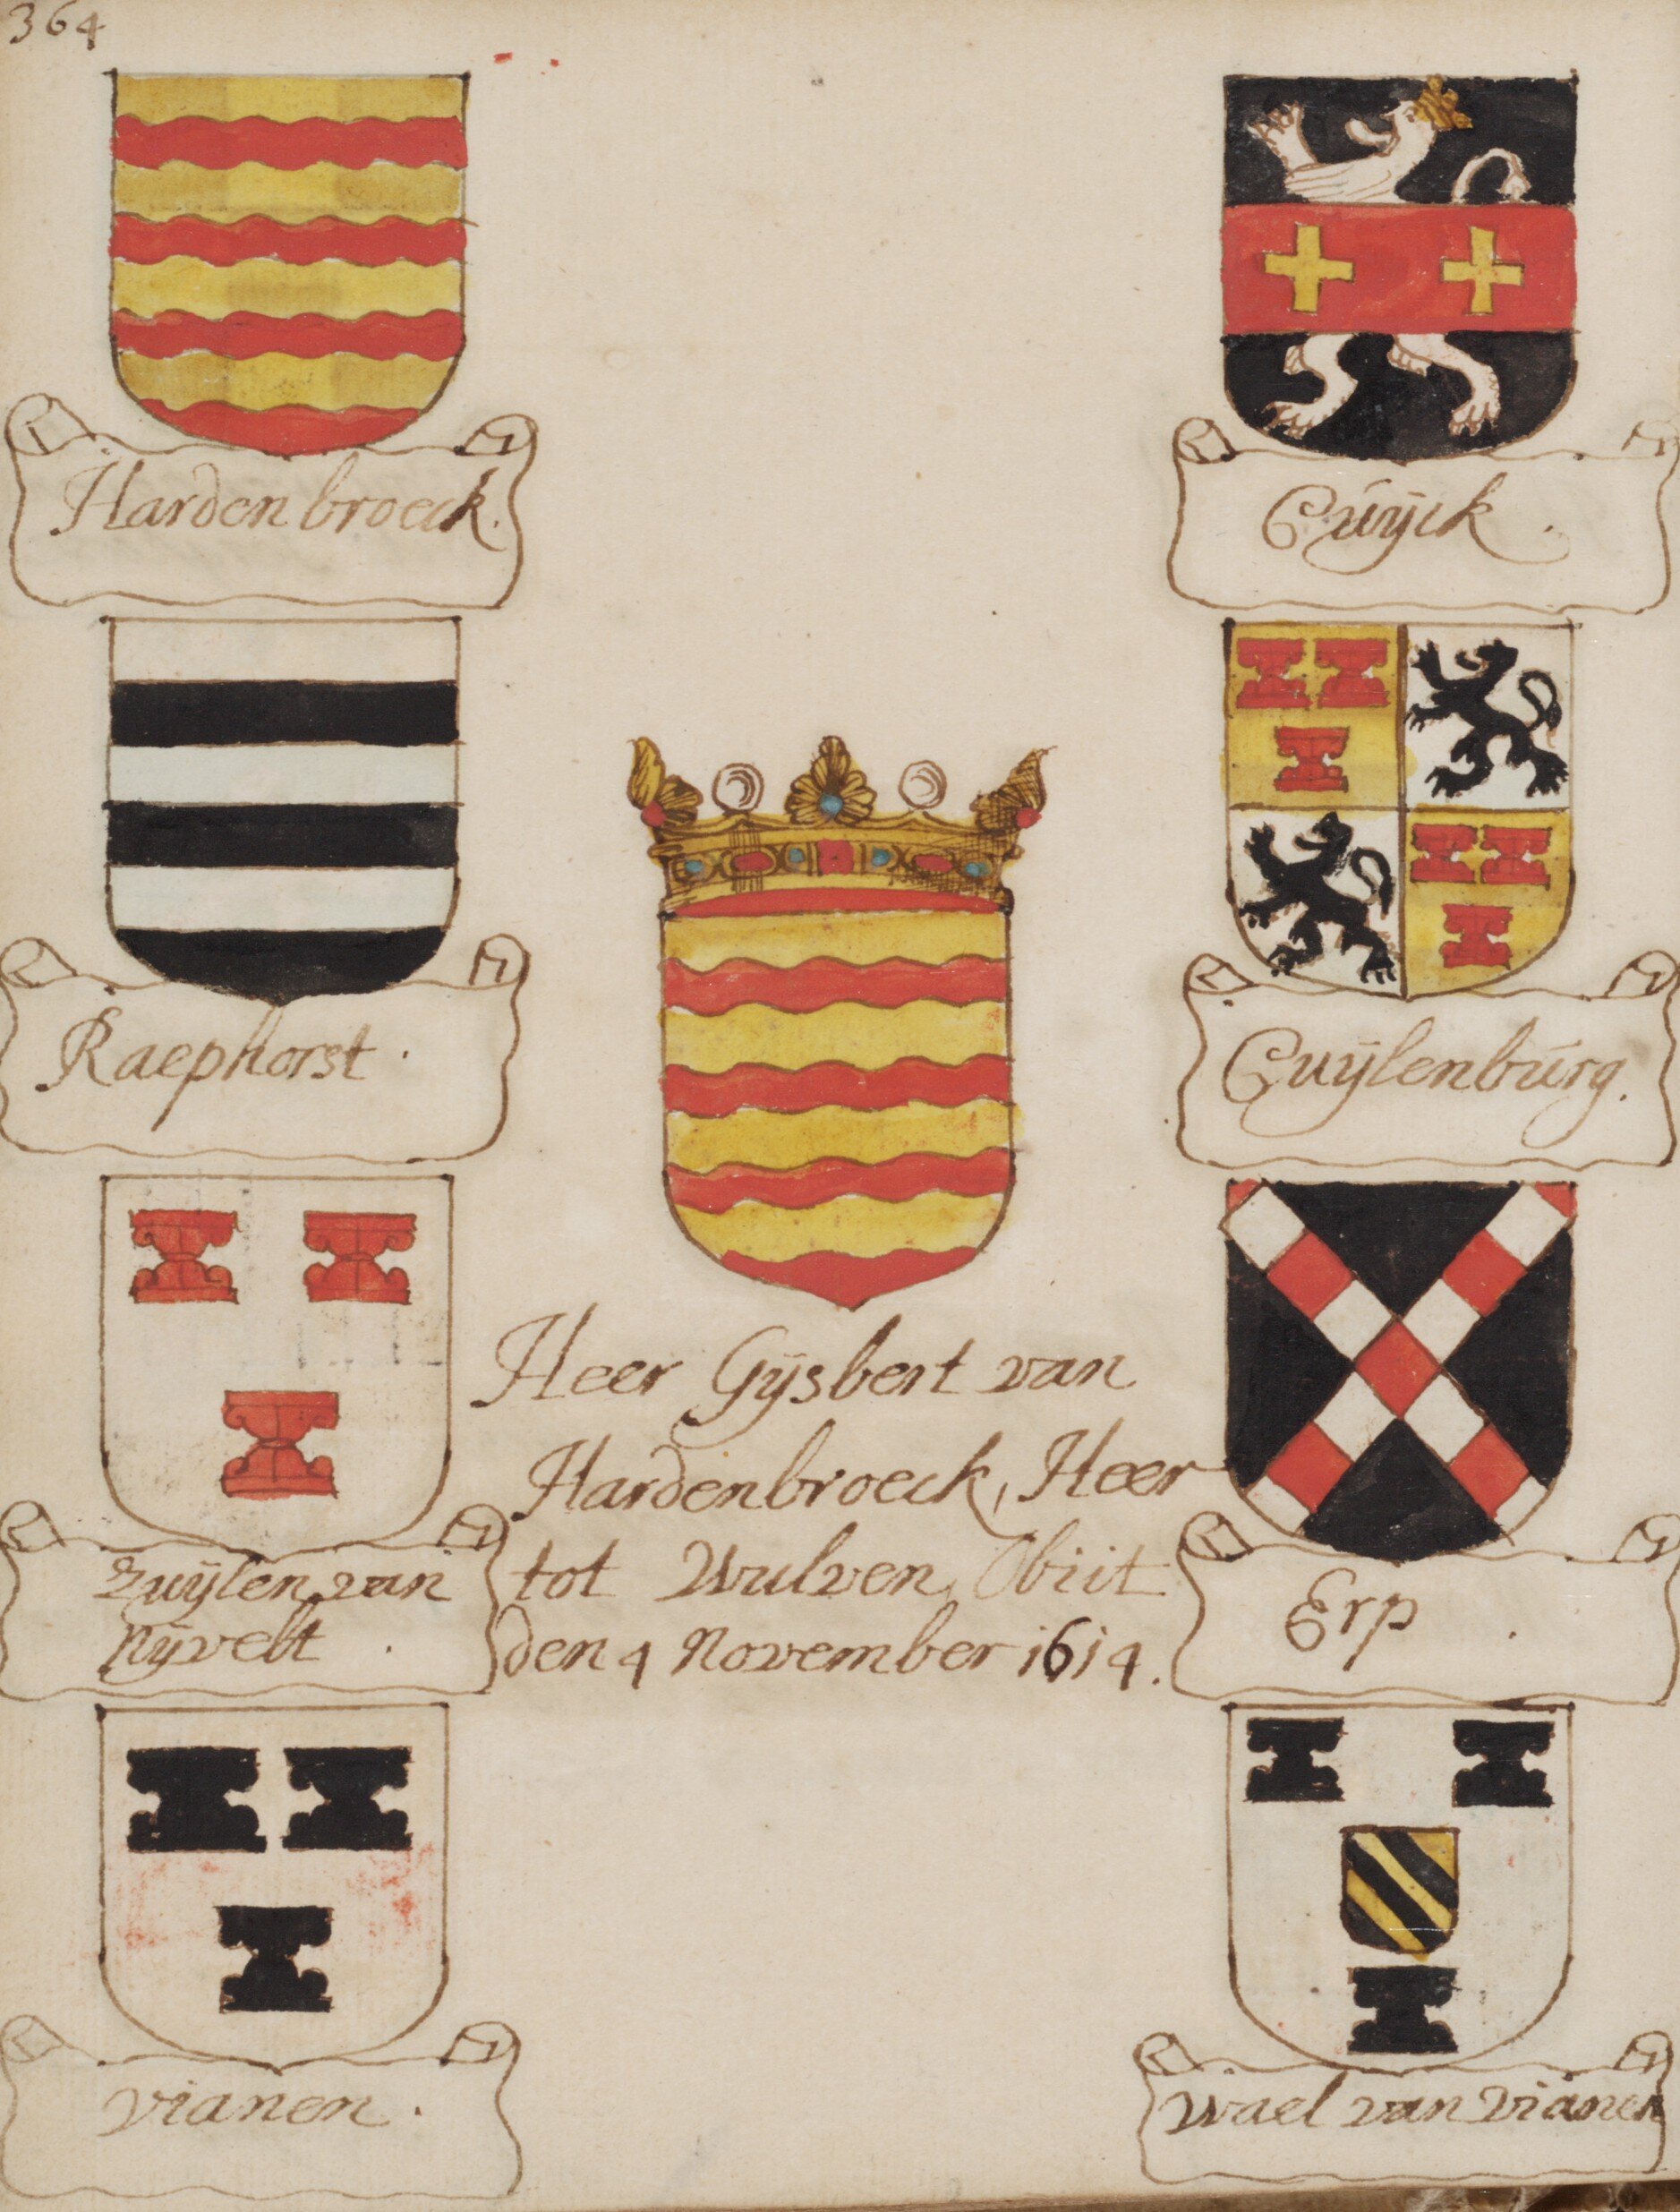 364
Hardenbroeck.
Cúÿck.
Raephorst.
Cuÿlenbúrg.
Zuÿlen van
Nÿvelt.
Erp.
Heer Gÿsbert van
Hardenbroeck, Heer
tot Wulven, Obiit
den 4 November 1614.
Vianen.
Wael van Vianen